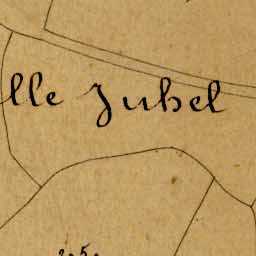 lle Juhel